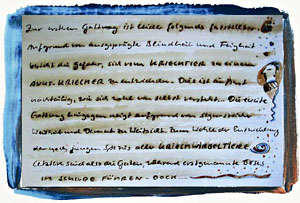 Zur ersten Gattung ist leider folgendes festzustellen
Aufgrund von ausgeprägte Blindheit und Feigheit
besteht die Gefahr, sich vom KRIECHTIER zu einem
KRIECHER zu entwickeln. Dies ist
nachteilig, wie sich von selbst versteht. Die zweite
Gattung hingegen neigt aufgrund von
und Demut zu Weitsicht. Zum Wohle der Entwicklung
der jungen aller
letztere sind also die Guten, während erstgenannte BÖSES
IM SCHILDE FÜHREN. DOCH....